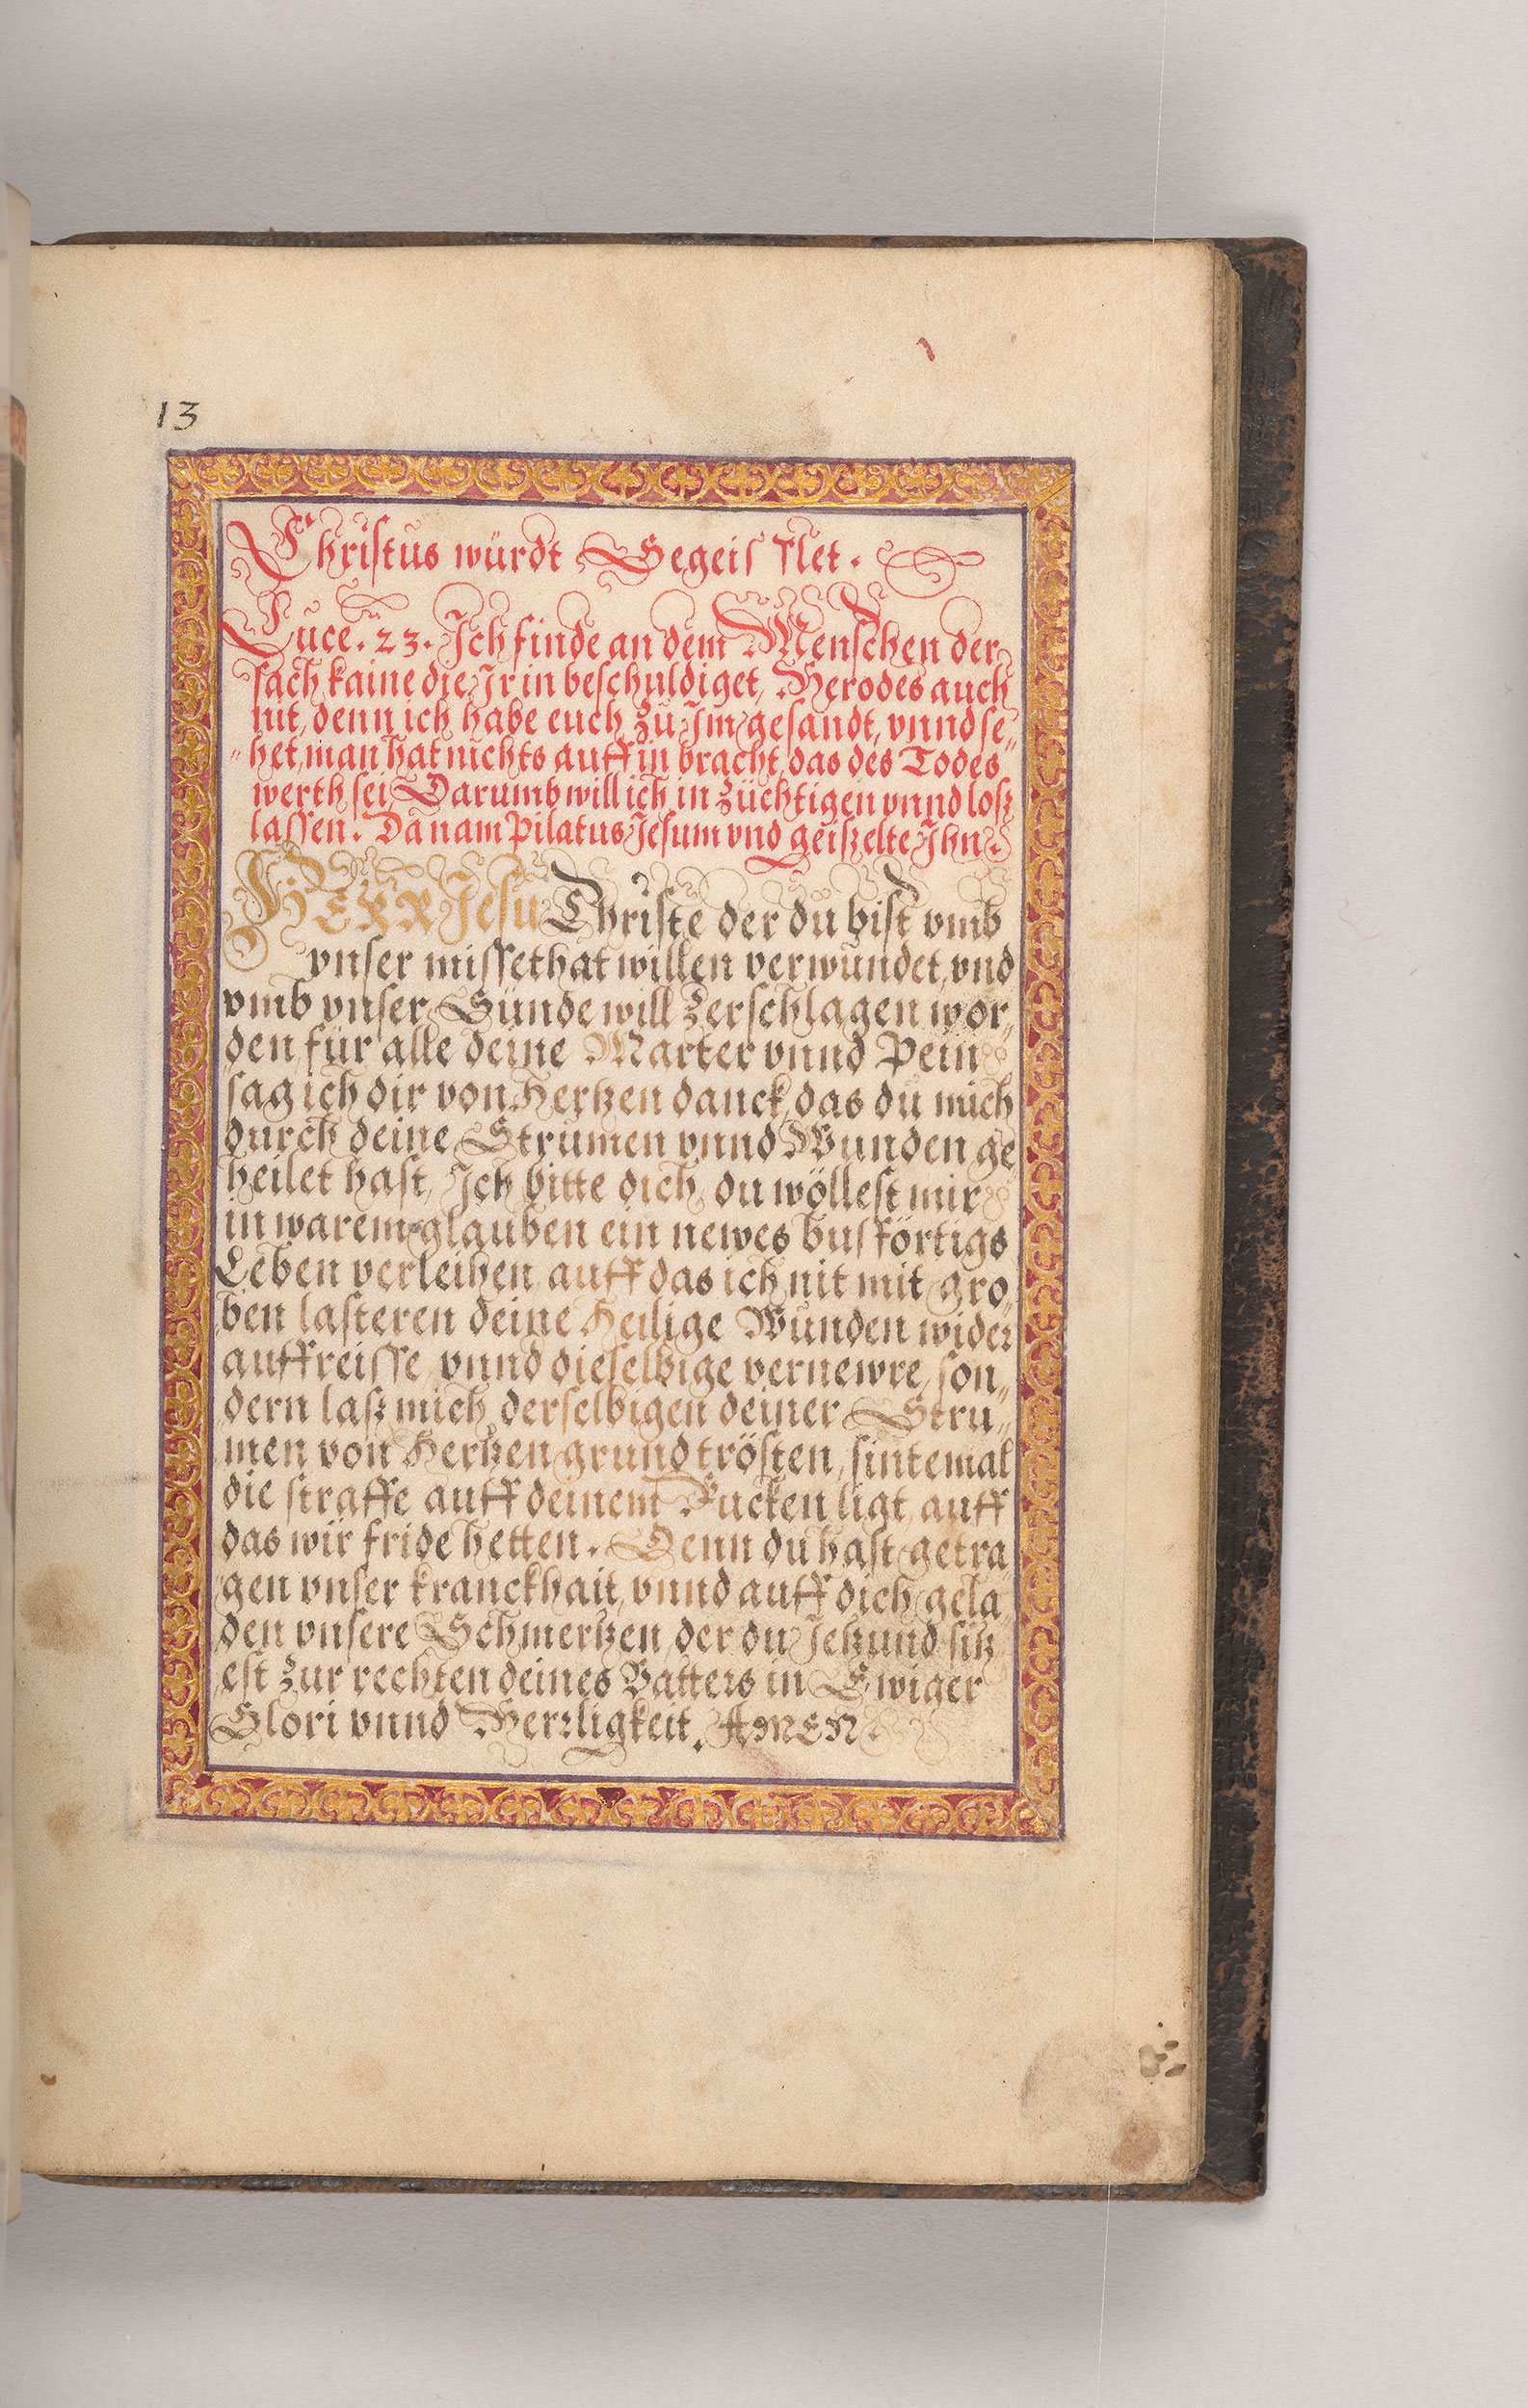 13
Christus würdt Gegeislet.
Luce. 23. Ich finde an dem Menschen der
sach kaine die Ir in beschuldiget, Herodes auch
nit, denn ich habe euch zu Im gesandt, vnnd se„
„het, man hat nichts auff in bracht, das des Todes
werth sei, Darumb will ich in züchtigen vnnd losz
lassen. Da nam Pilatus Jesum vnd geiszelte Ihn.
HERR Jesu Christe der du bist vmb
vnser missethat willen verwundet, vnd
vmb vnser Sünde will zerschlagen wor„
den, für alle deine Marter vnnd Pein
sag ich dir von Hertzen danck, das du mich
durch deine Strumen vnnd Wunden ge
heilet hast, Ich bitte dich, du wöllest mir
in warem glauben ein newes busförtigs
Leben verleihen, auff das ich nit mit gro„
ben lasteren deine Heilige Wunden wider
auffreisse, vnnd dieselbige vernewre, son„
dern lasz mich derselbigen deiner Stru„
men von Hertzen grund trösten, sintemal
die straffe auff deinem Rucken ligt, auff
das wir fride hetten. Denn du hast getra
gen vnser kranckhait, vnnd auff dich gela„
den vnsere Schmertzen, der du Jetzund sitz
est zur rechten deines Vatters in Ewiger
Glori vnnd Herrligkeit. AMEN.